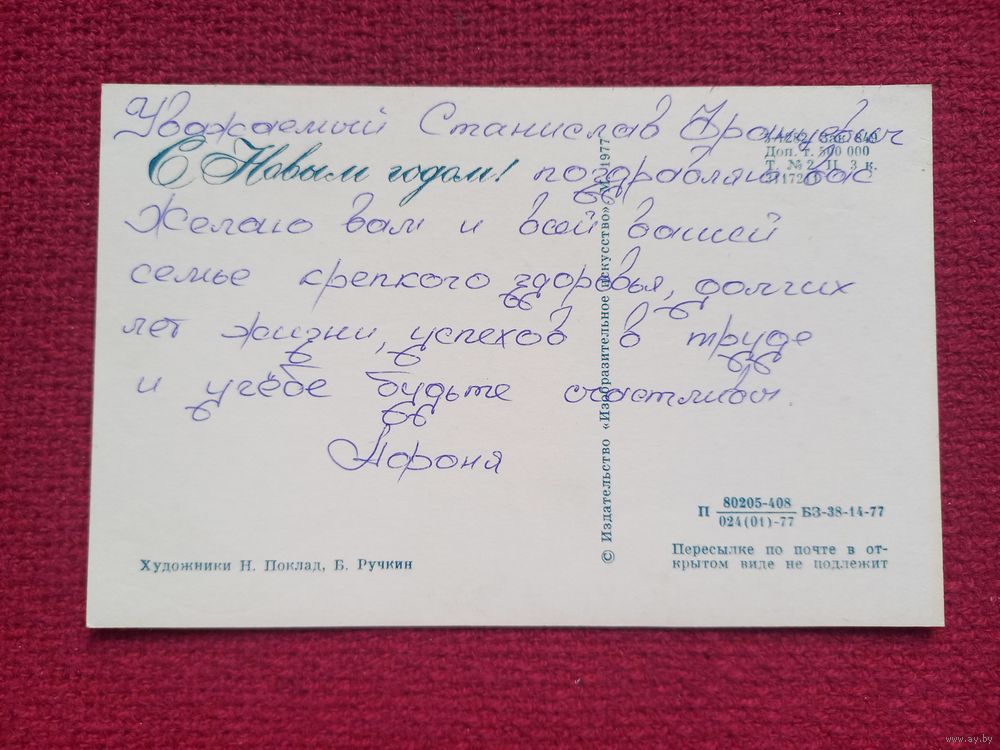 Уважаемый Станислав Францевич
С Новым годом! поздравляю вас
Желаю вам и всей вашей
семье крепкого здоровья, долгих
лет жизни, успехов в труде
и учёбе будьте счастливы.
Зак. 849
Доп. т. 500 000
Т. № 2 Ц. 3 к.
© Издательство «Изобразительное искусство» 1977
П 80205-408
024(01)-77 БЗ-38-14-77
Художники Н. Поклад, Б. Ручкин
Пересылке по почте в от-
крытом виде не подлежит
www.ay.by